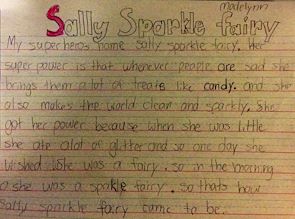 madelynn
Sally Sparkle fairy
My superheros name sally sparkle fairy. Her
super power is that whenever people are sad she
brings them alot of treats like candy. and she
also makes the world clean and sparkly. She
got her power because when she was little
she ate alot of glitter and so one day she
wished she was a fairy. so in the morning
she was a spakle fairy. so thats how
Sally sparckle fairy came to be.